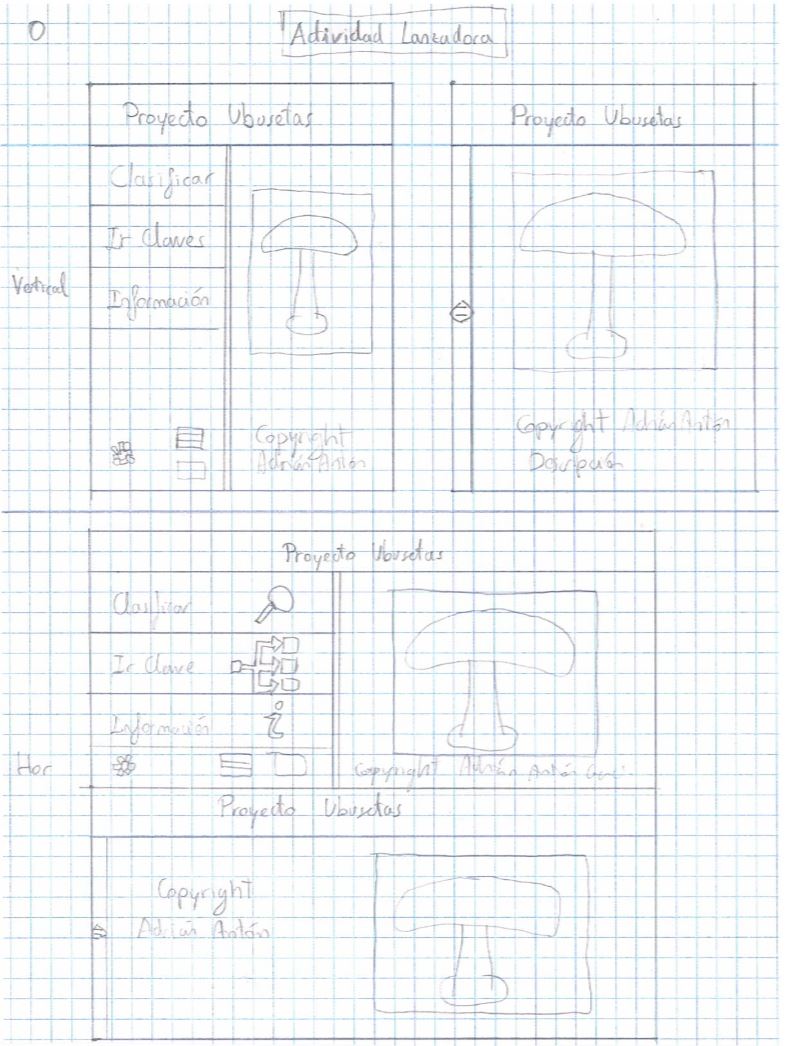 0
Actividad Lanzadora
Proyecto Ubusetas
Clasificar
Ir Claves
Información
Copyright
Adrián Antón
Proyecto Ubusetas
Copyright Adrián Antón
Descripción
Vertical
Proyecto Ubusetas
Clasificar
Ir Clave
Información
Copyright Adrián Antón
Hor
Proyecto Ubusetas
Copyright
Adrián Antón